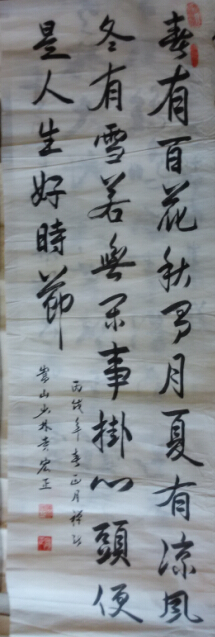 春有百花秋有月夏有凉風
冬有雪若無閑事掛心頭便
是人生好時節
丙戌年春正月
嵩山少林